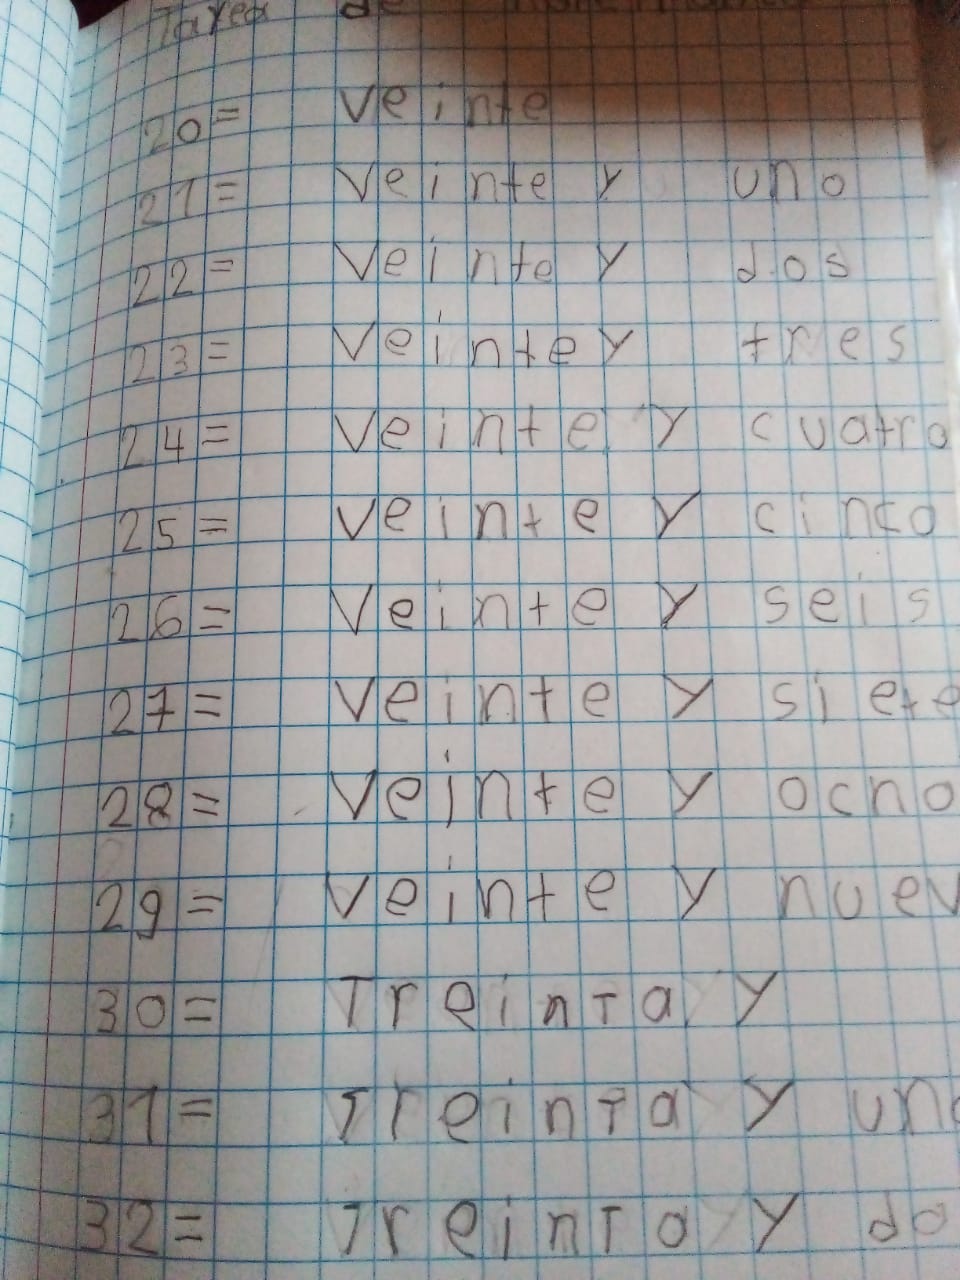 Tarea de
20= Veinte
21= Veinte y uno
22= Veinte y dos
23= Veinte y tres
24= Veinte y cuatro
25= Veinte y cinco
26= Veinte y seis
27= Veinte y siete
28= Veinte y ocho
29= Veinte y nuev
30= Treinta y
31= Treinta y uno
32= Treinta y do